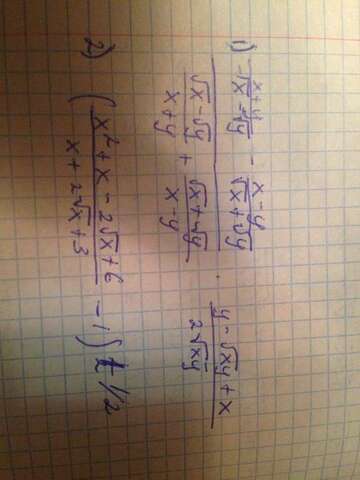 1) \frac{\frac{x+y}{\sqrt{x}-\sqrt{y}} - \frac{x-y}{\sqrt{x}+\sqrt{y}}}{\frac{\sqrt{x}-\sqrt{y}}{x+y} + \frac{\sqrt{x}+\sqrt{y}}{x-y}} \cdot \frac{y-\sqrt{xy}+x}{2\sqrt{xy}}
2) \left(\frac{x^2+x-2\sqrt{x}+6}{x+2\sqrt{x}+3} - 1\right) 1/2